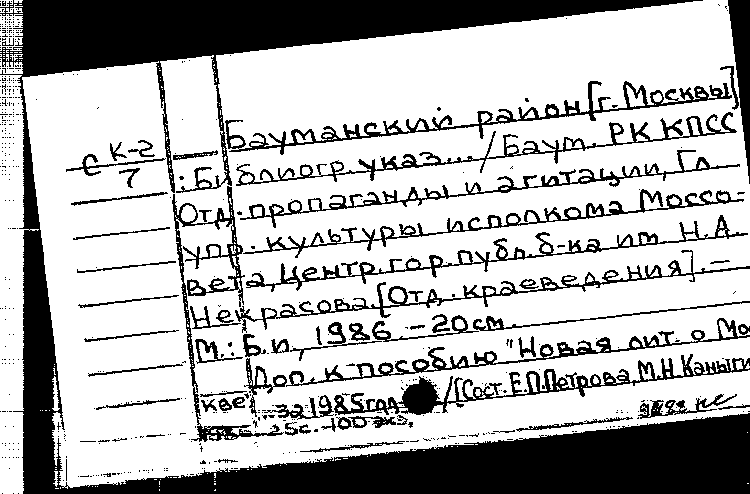 Бауманский район [г. Москвы]
С К-2
7
: Библиогр. указ... / Баум. РК КПСС
Отд. пропаганды и агитации, Гл.
упр. культуры исполкома Моссо-
вета, Центр. гор. публ. б-ка им. Н.А.
Некрасова. [Отд. краеведения]. –
М.: Б.и., 1986. – 20см.
Доп. к пособию "Новая лит. о Мос
кве"
... за 1985 год / [Сост. Е.П.Петрова, М.Н. Каныги
1986. 25с. -100 экз.